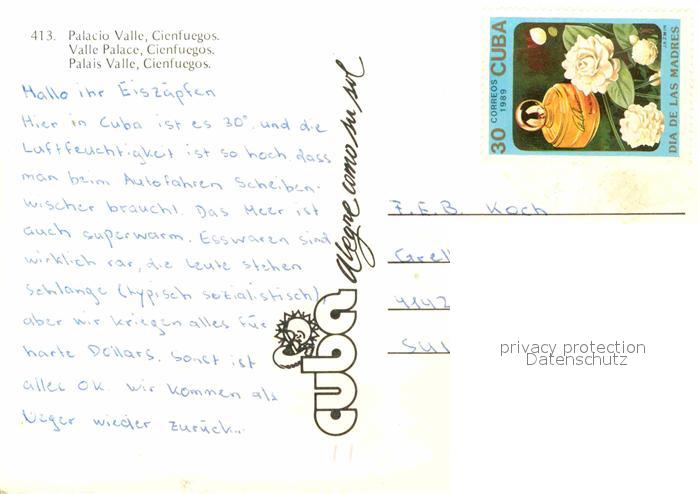 413. Palacio Valle, Cienfuegos.
Valle Palace, Cienfuegos.
Palais Valle, Cienfuegos.
Hallo ihr Eiszäpfen
Hier in Cuba ist es 30° und die
Luftfeuchtigkeit ist so hoch, dass
man beim Autofahren Scheiben-
wischer braucht. Das Meer ist
auch superwarm. Esswaren sind
wirklich rar, die Leute stehen
Schlange (typisch sozialistisch),
aber wir kriegen alles für
harte Dollars. Sonst ist
alles OK. Wir kommen als
Neger wieder zurück..
cuba
Alegre como su sol
30 CORREOS CUBA
1989
JAZMIN
DIA DE LAS MADRES
F.E.B. Koch
Grell
4142
privacy protection
Datenschutz